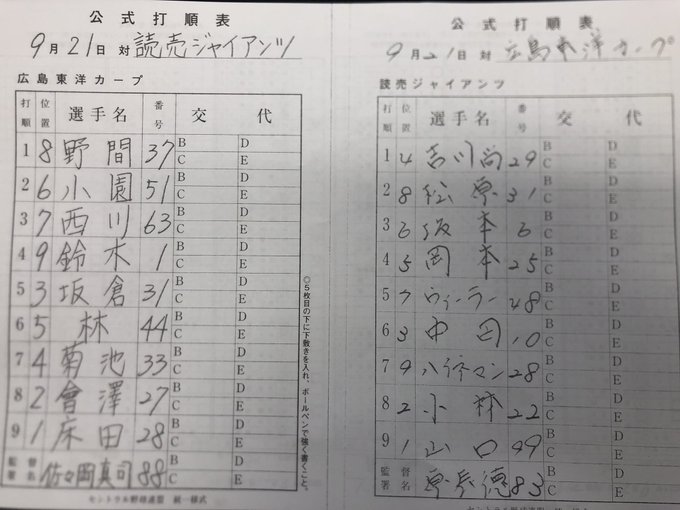 公式打順表
9月21日 対 読売ジャイアンツ
広島東洋カープ
打順 位置 選手名 番号 交代
1 8 野間 37 B C D E
2 6 小園 51 B C D E
3 7 西川 63 B C D E
4 9 鈴木 1 B C D E
5 3 坂倉 31 B C D E
6 5 林 44 B C D E
7 4 菊池 33 B C D E
8 2 會澤 27 B C D E
9 1 床田 28 B C D E
監督署名 佐々岡真司 88 B C D E
セントラル野球連盟 統一様式
◎5枚目の下に下敷きを入れ、ボールペンで強く書くこと。
公式打順表
9月21日 対 広島東洋カープ
読売ジャイアンツ
打順 位置 選手名 番号 交代
1 4 吉川尚 29 B C D E
2 8 松原 31 B C D E
3 6 坂本 6 B C D E
4 5 岡本 25 B C D E
5 7 ウィーラー 48 B C D E
6 3 中田 10 B C D E
7 9 ハイネマン 28 B C D E
8 2 小林 22 B C D E
9 1 山口 99 B C D E
監督署名 原辰徳 83 B C D E